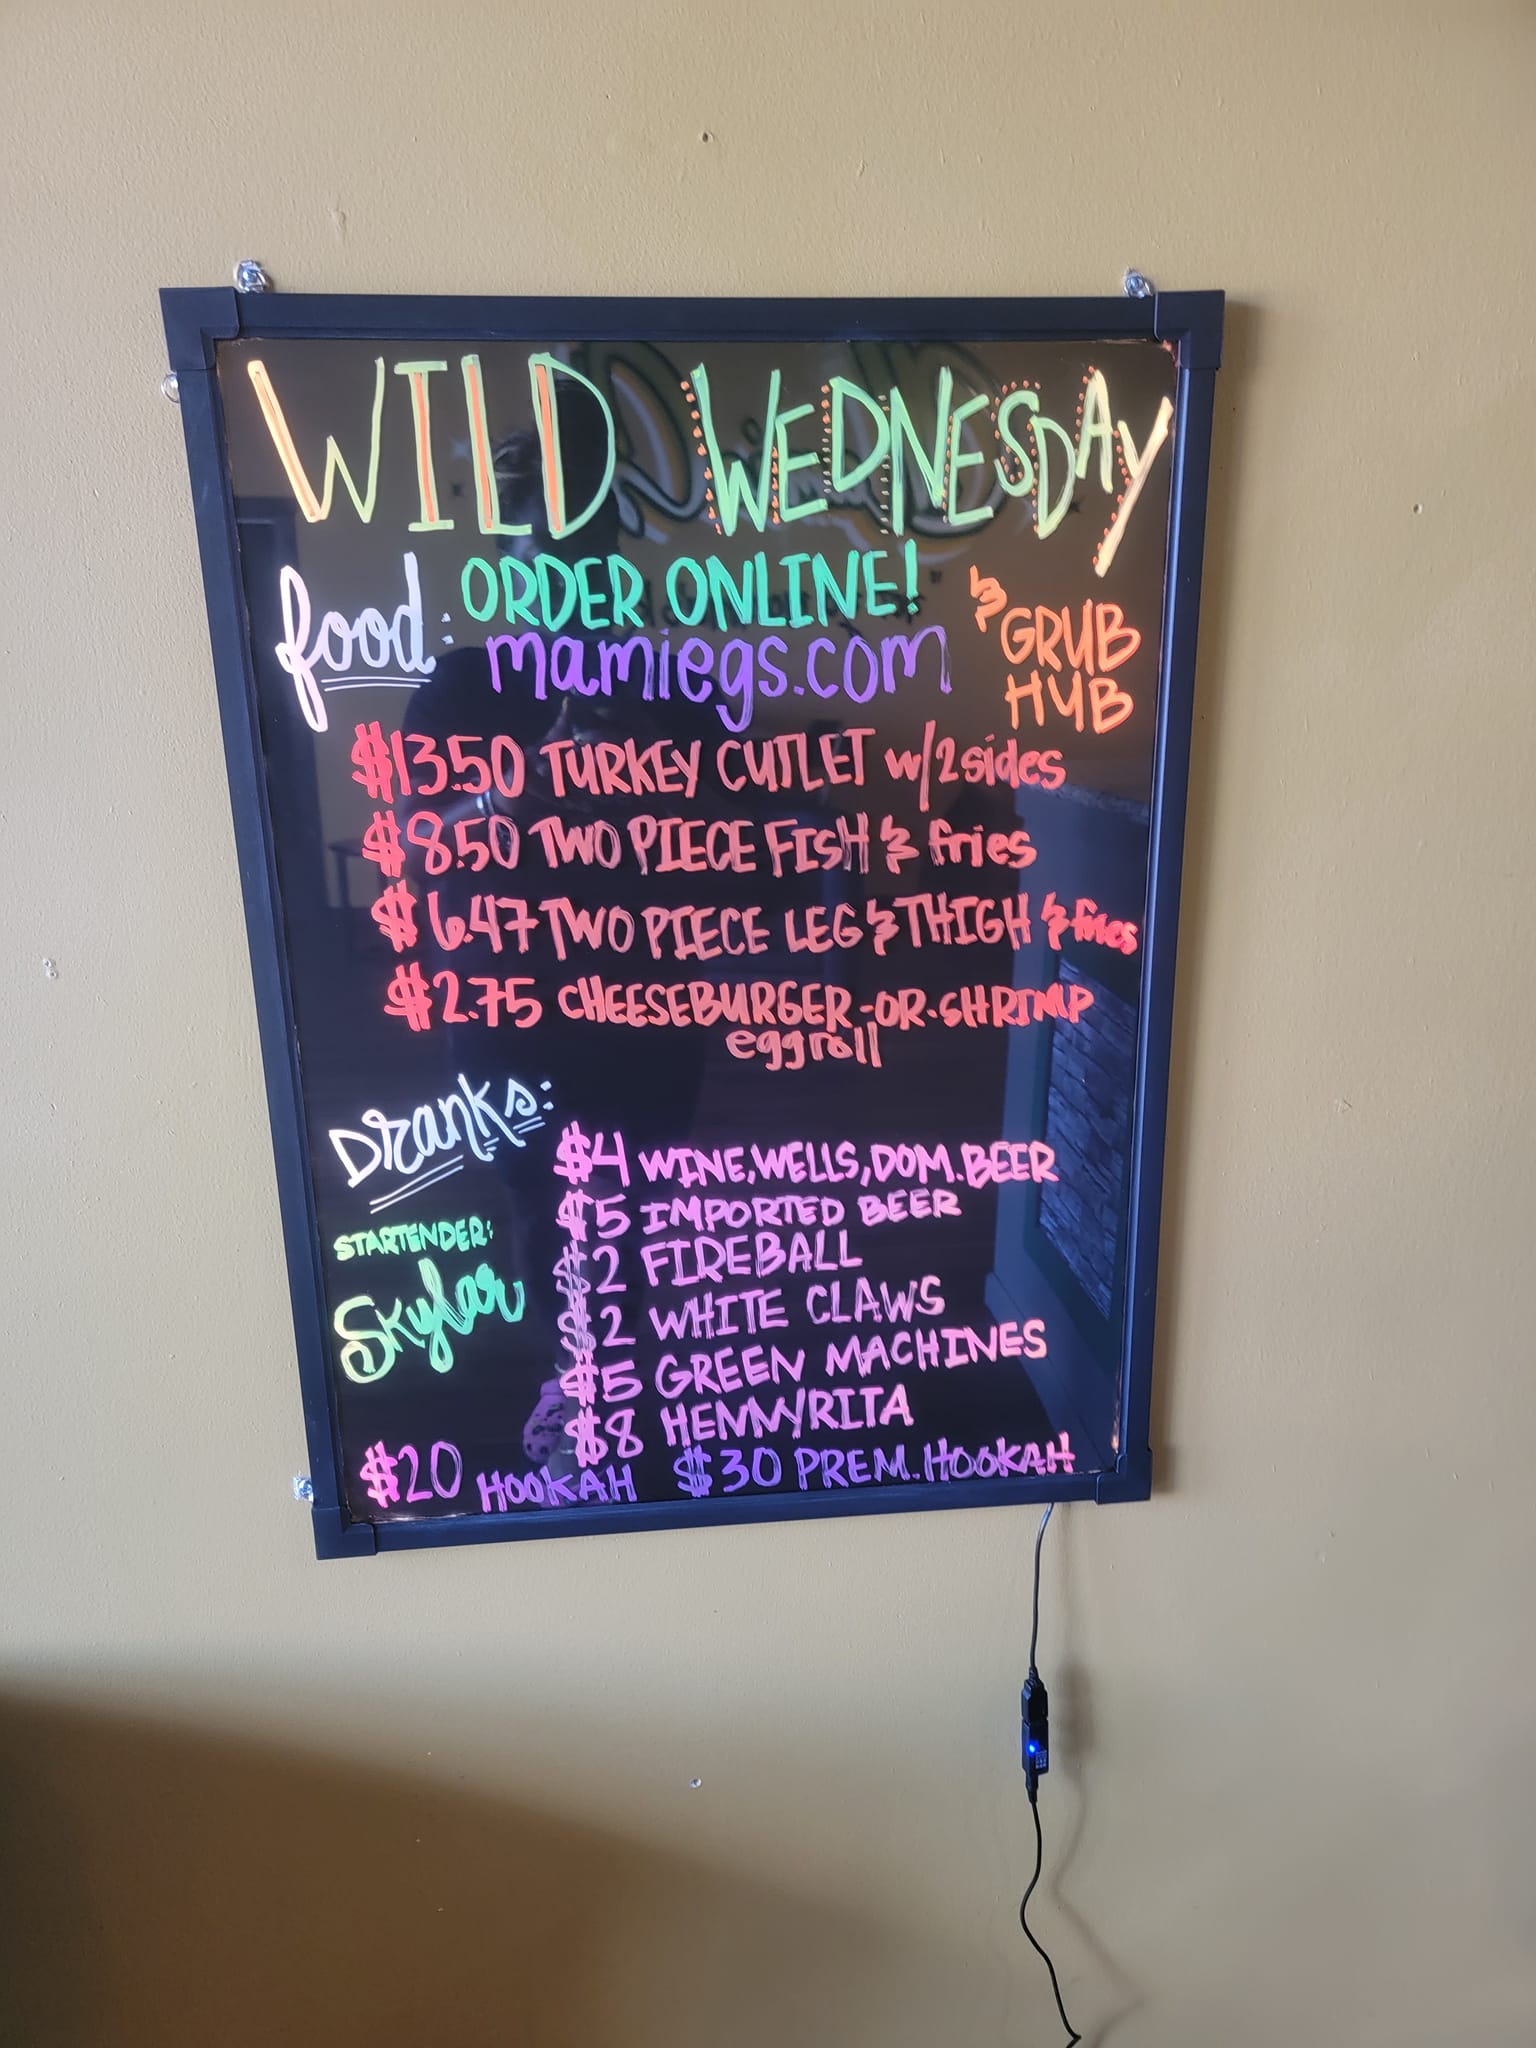 WILD WEDNESDAY
food: ORDER ONLINE! & GRUB
mamiegs.com HUB
$13.50 TURKEY CUTLET w/2 sides
$8.50 TWO PIECE FISH & fries
$6.47 TWO PIECE LEG & THIGH & fries
$2.75 CHEESEBURGER -OR- SHRIMP
eggroll
Dranks:
$4 WINE, WELLS, DOM. BEER
$5 IMPORTED BEER
STARTENDER:
Skylar
$2 FIREBALL
$2 WHITE CLAWS
$5 GREEN MACHINES
$8 HENNYRITA
$20 HOOKAH $30 PREM. HOOKAH